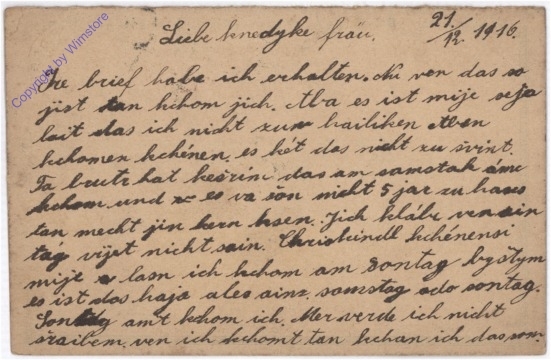 21/12. 1916.
Liebe knedyke frau.
Ire brief habe ich erhalten. Nu ven das so
jist tan kchom jich. Aba es ist mije seja
lait das ich nicht zum hailiken Aben
kchomen kchénen. es két das nicht zu švint.
Ta brutr hat kešrin das am samstak
kchom und es va šon nicht 5 jar zu haus
tan mecht jin kern hsen. Jich klábe ven ain
tág vijet nicht sain. Christkindl kchénensi
mije lasn ich kchom am Sontag byštym
es ist das haja ales ainz. samstag odo sontag.
Sontag amt kchom ich. Mer verde ich nicht
sraibem. ven ich kchomt tan kchan ich das som.
Copyright by Wimstore